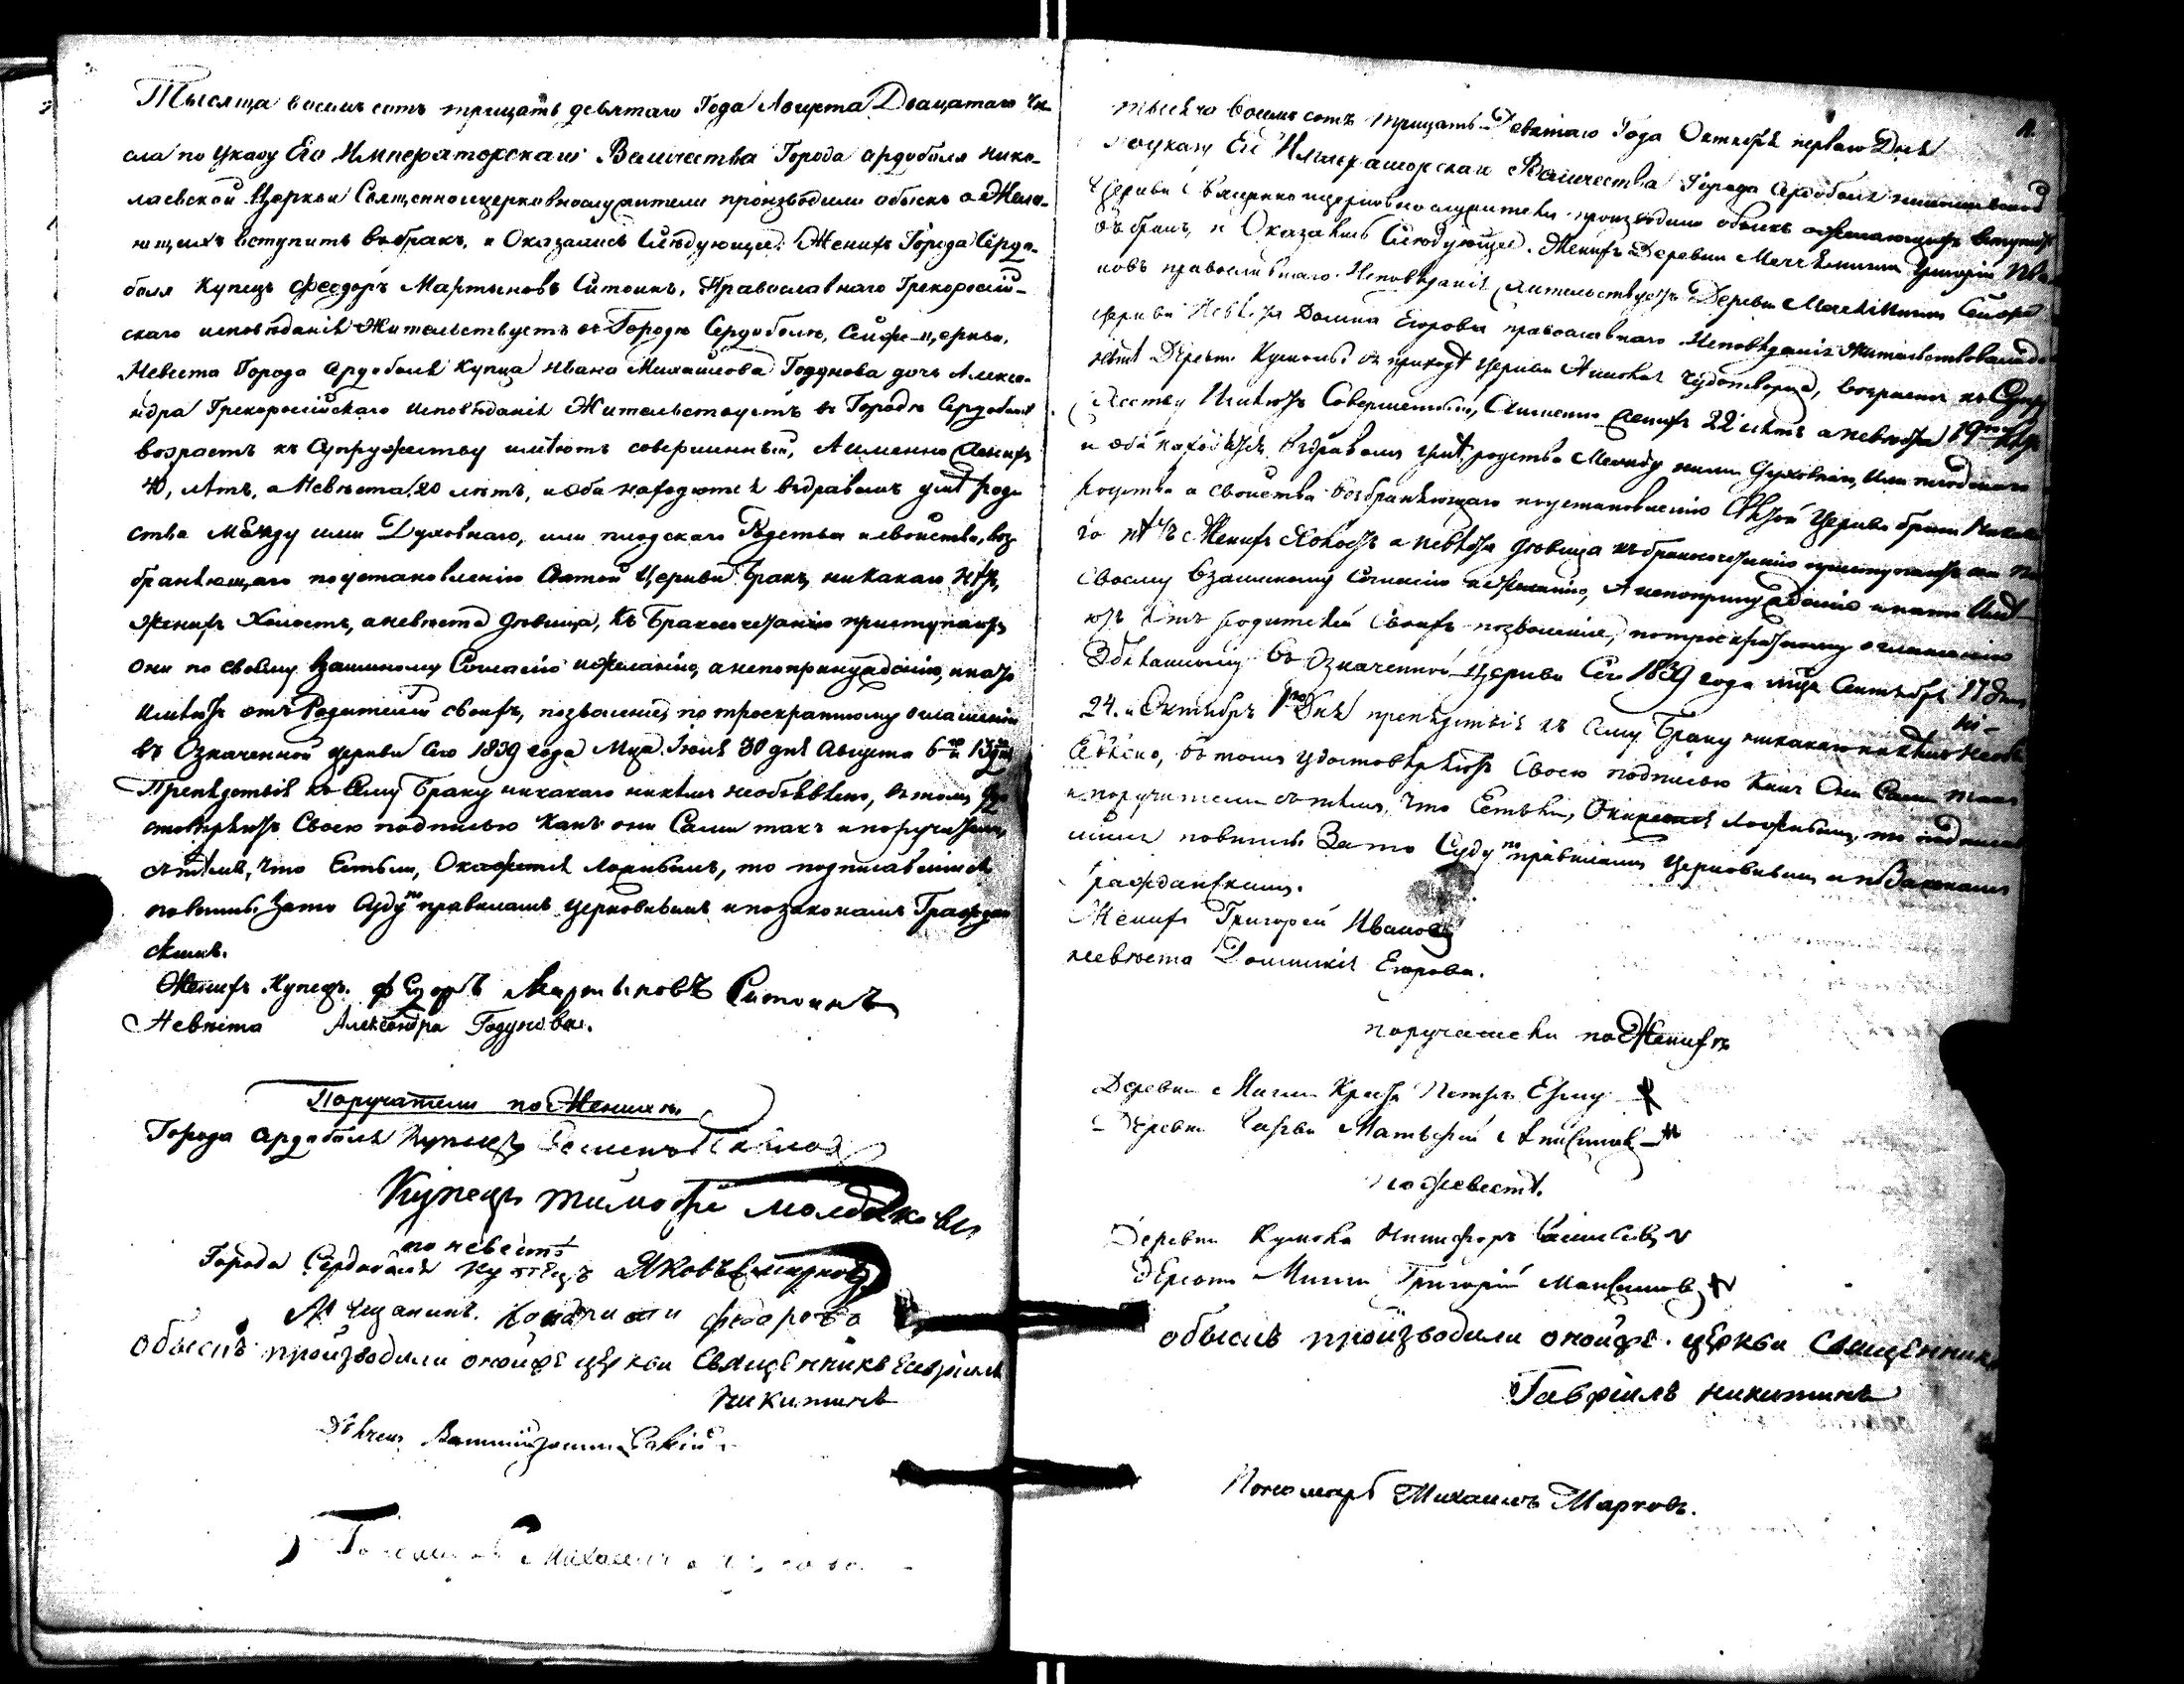 Тысяща восемь сотъ трицать девятаго Года Августа Двацатаго чи-
сла по Указу Его Императорскаго Величества Города ардоболя Нико-
лаевской Церкви Священноицерковнослужители производили обыскъ о Жела-
ющихъ вступить вобракъ, и Оказалось Слѣдующее. Женихъ Города Сердо-
боля Купецъ Феодоръ Мартыновъ Ситоинъ, Православнаго Грекороссій-
скаго исповѣданія Жительствуетъ въ Городѣ Сердоболѣ, Сейже церкви.
Невѣста Города ардоболя Купца Ивана Михайлова Годунова дочь Алекса-
ндра Грекороссійскаго исповѣданія Жительствуетъ въ Городѣ Сердоболѣ
возрастъ къ Супружеству имѣютъ совершенный, Аименно Женихъ
40, лѣтъ, а Невѣста, 20 лѣтъ, и оба находятся въздравомъ умѣ роде
ства между ими Духовнаго, или плодскаго Родства и свойства, воз-
браняющаго поустановленію Святой Церкви бракъ, никакаго нѣтъ,
Женихъ Холостъ, а невѣста дѣвица, Къ Бракосочетанію приступаютъ
они по своему взаимному Согласію ижеланію, а непопринужденію, инато
имѣютъ отъ Родителей своихъ, позволеніе, по троекратному оглашенію
въ Означенной церкви Сего 1839 года Мца Іюля 30 дня Августа 6го и 13 дня
Препядствія къ Сему Браку никакаго никѣмъ необъявлено, въ томъ удо
стовѣряютъ Своею подписью какъ они Сами такъ и поручители,
съ тѣмъ, что Естьли, Окажется ложнымъ, то подписавшіися
повинны Зато Суду по правиламъ церковнымъ и позаконамъ Граждан
скимъ.
Женихъ Купецъ. Федоръ Мартыновъ Ситоинъ
Невѣста Александра Годунова.
Поручатели по Женихѣ
Города ардоболя Купецъ Семенъ
Купецъ тимофей
по невестѣ
Города Сердоболя купецъ Яковъ
Мещанинъ. федорова
обыскъ производили оной же церкви Священникъ Гавріилъ
Никитинъ
Михаилъ
Тысяча восемь сотъ трицать Девятаго Года Октября перваго Дня
поуказу Его Императорскаго Величества Города Сердоболя
Церкви Священноицерковнослужители производили обыскъ ожелающихъ вступить
въ бракъ, и Оказалось Слѣдующее. Женихъ Деревни Григорій Ива-
новъ православнаго Исповѣданія Жительствуетъ Деревни Сейже
церкви Невѣста Домна Егорова православнаго Исповѣданія
Деревни въ приходѣ церкви Чудотворца, возрастъ къ Супру
жеству Имѣютъ Совершенный, Аименно Женихъ 22 лѣтъ а невѣста 19ть лѣтъ
и оба находятся въздравомъ умѣ, родства Между ними Духовнаго, Или плодскаго
родства а свойства возбраняющаго поустановленію Святой церкви бракъ Никака
го нѣтъ Женихъ Холостъ а невѣста дѣвица къ бракосочетанію приступаютъ они по
своему взаимному Согласію ижеланію, А непопринужденію инато Имѣ-
ютъ отъ родителей Своихъ позволеніе, потроекратному оглашенію
Здѣланному въ Означенной церкви Сего 1839 года мца Сентября 17 дня
24. и Октября 1го Дня препядствія къ Сему Браку никакаго никѣмъ необъ-
явлено, въ томъ удостовѣряютъ Своею подписью Какъ Они Сами такъ
и поручители съ тѣмъ, что Естьли, Окажется ложнымъ, то подписав
шіися повинны Зато Суду по правиламъ церковнымъ и по Законамъ
гражданскимъ.
Женихъ Григорей Ивановъ
невѣста Домникія Егорова.
поручители по Женихѣ
Деревни Крест Петръ
Деревни Матьвѣй
по Невестѣ.
Деревни Никифоръ
Деревни Григорій Максимовъ
обыскъ производили оной же церкви Священникъ
Гавріилъ никитинъ
Пономарь Михаилъ Марковъ.